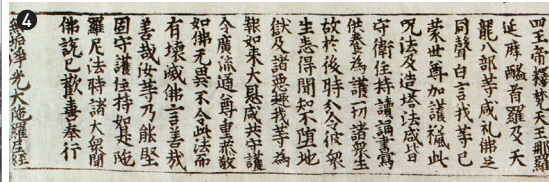 4
四王帝釋梵天王那羅
延摩醯首羅及天
龍八部等咸礼佛足
同聲白言我等已
蒙世尊加護授此
呪法及造塔法咸皆
守衛住持讀誦書寫
供養為護一切諸衆生
故於後時分令彼衆
生悉得聞知不墮地
獄及諸惡趣我等為
報如来大恩咸共守護
令廣流通尊重恭敬
如佛无異不令此法而
有壞滅佛言善哉
善哉汝等乃能堅
固守護住持如是陁
羅尼法時諸大衆聞
佛說已歡喜奉行
無垢淨光大陁羅尼經